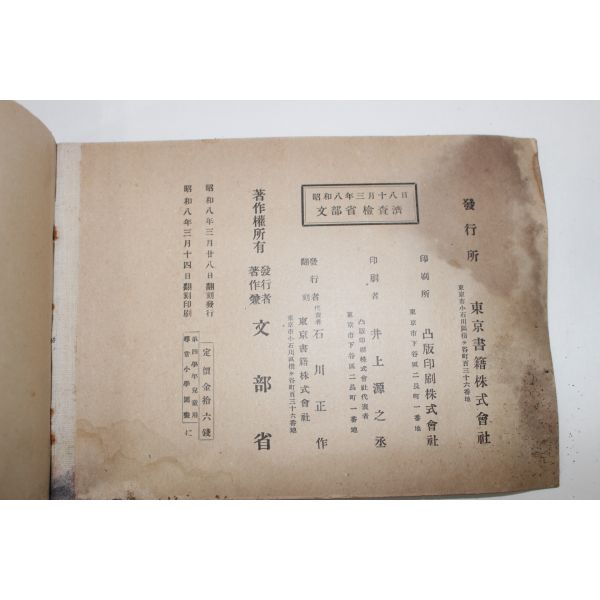 發行所 東京書籍株式會社
東京市小石川區指ヶ谷町百三十六番地
印刷所 凸版印刷株式會社
東京市下谷區二長町一番地
印刷者 井上源之丞
凸版印刷株式會社代表者
東京市下谷區二長町一番地
昭和八年三月十八日
文部省檢查濟
翻刻發行者 代表者 石川正作
東京書籍株式會社
東京市小石川區指ヶ谷町百三十六番地
著作權所有 著作兼發行者 文部省
昭和八年三月廿八日翻刻發行
昭和八年三月十四日翻刻印刷
定價金拾六錢
第四學年兒童用
尋常小學圖畫
に